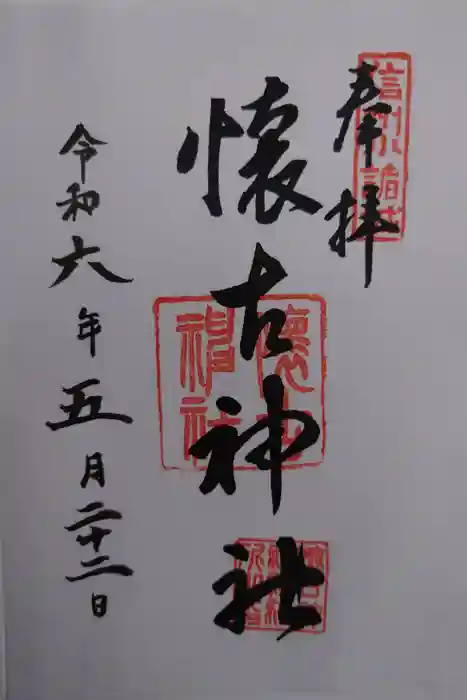 奉拝
信州小諸城
懐古神社
懐古
神社
令和六年五月二十二日